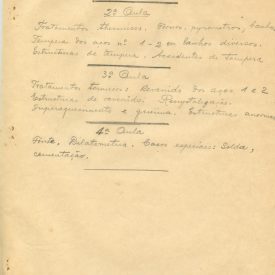 2ª Aula
Tratamentos thermicos. Fornos, pyrometros, banhos
Tempera dos aços nº 1-2 em banhos diversos.
Estructuras de tempera. Accidentes de tempera
3ª Aula
Tratamentos termicos. Revenido dos aços 1 e 2
Estructuras de revenido,
Superaquecimento e queima. Estructuras anormaes
4ª Aula
Fonte. Dilatometria. Casos especiaes: Solda,
cementação.